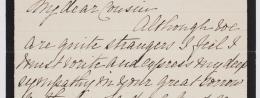 My dear Cousin
Although we
are quite strangers I feel I
must write and express my deep
sympathy in your great sorrow